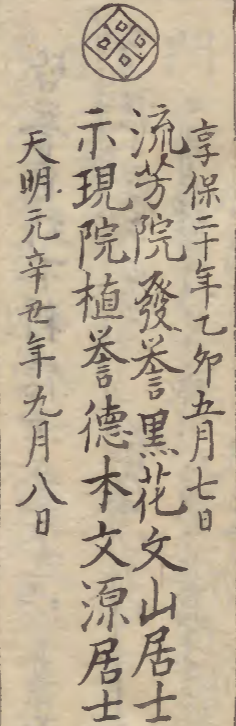 享保二十年乙卯五月七日
流芳院發誉黒花文山居士
示現院植誉德本文源居士
天明元辛丑年九月八日